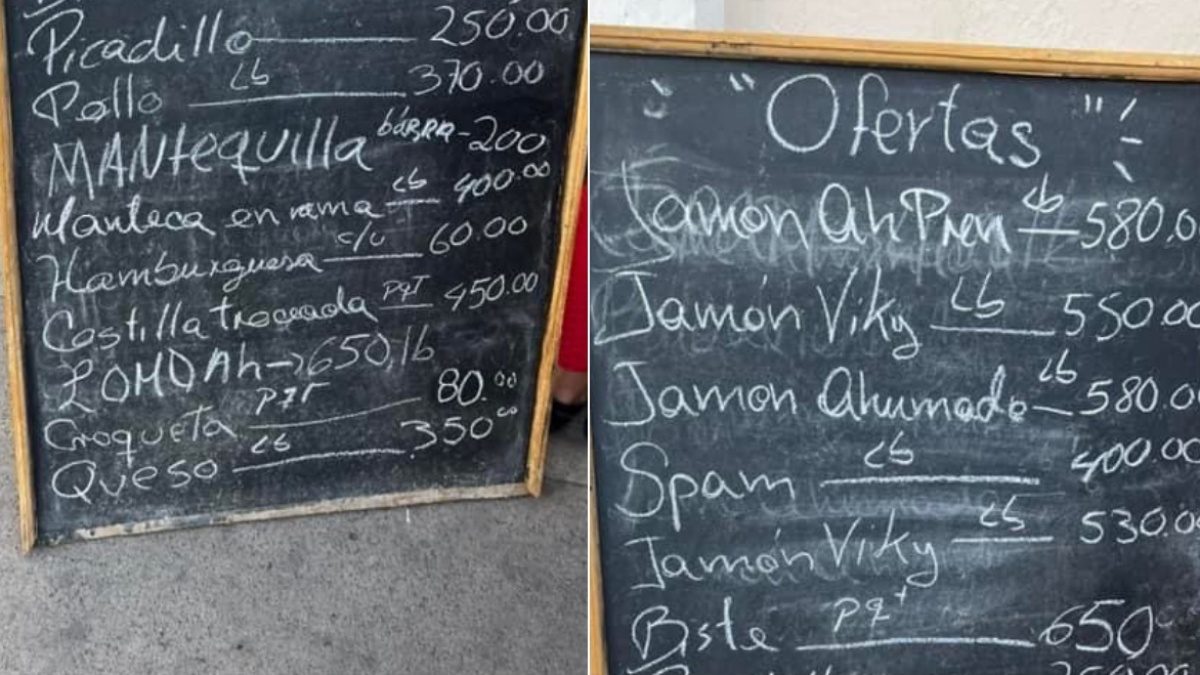 Picadillo 250.00
Pollo Lb 370.00
MANtequilla bárRA - 200
Manteca en rama Lb 400.00
Hamburguesa c/u 60.00
Costilla troceada pqt 450.00
LOMO Ah → 650, lb
Croqueta pqt 80.00
Queso Lb 350.00
"Ofertas"
Jamón Ah Pren Lb 580.0
Jamón Viky Lb 550.00
Jamón Ahumado Lb 580.0
Spam Lb 400.00
Jamón Viky Lb 530.0
Biste pqt 650